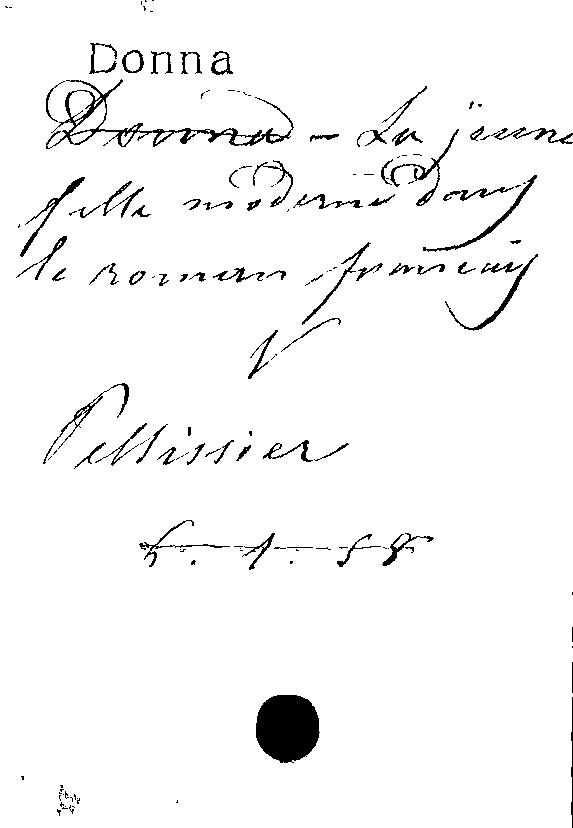 Donna
Donna – La jeune
fille moderne dans
le roman français
V
Pellissier